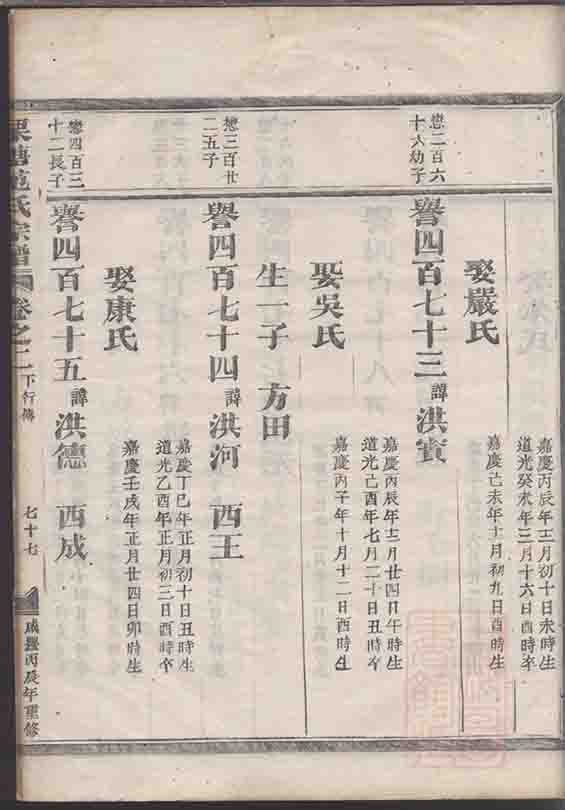 嘉慶丙辰年十二月初十日未時生
道光癸未年三月十六日酉時卒
娶嚴氏
嘉慶己未年十一月初九日酉時生
懋二百六
十六幼子
譽四百七十三諱洪賓
嘉慶丙辰年十二月廿四日午時生
道光己酉年七月二十日丑時卒
娶吳氏
嘉慶丙子年十月十二日酉時生
生一子 方田
懋三百廿
二五子
譽四百七十四諱洪河 西王
嘉慶丁巳年正月初十日丑時生
道光乙酉年正月初三日酉時卒
娶康氏
嘉慶壬戌年正月廿四日卯時生
懋四百三
十二長子
譽四百七十五諱洪德 西成
氏宗譜 卷之二 下行傳 七十七 咸豐丙辰年重修